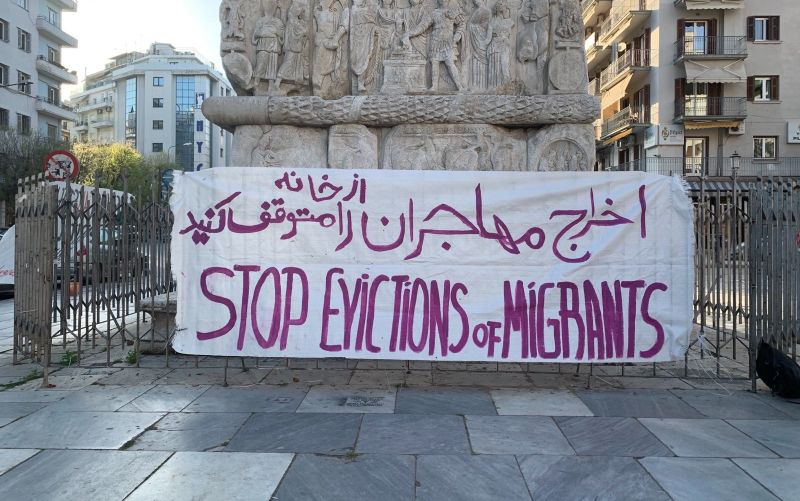 اخراج مهاجران را از خانه متوقف کنید
STOP EVICTIONS OF MIGRANTS